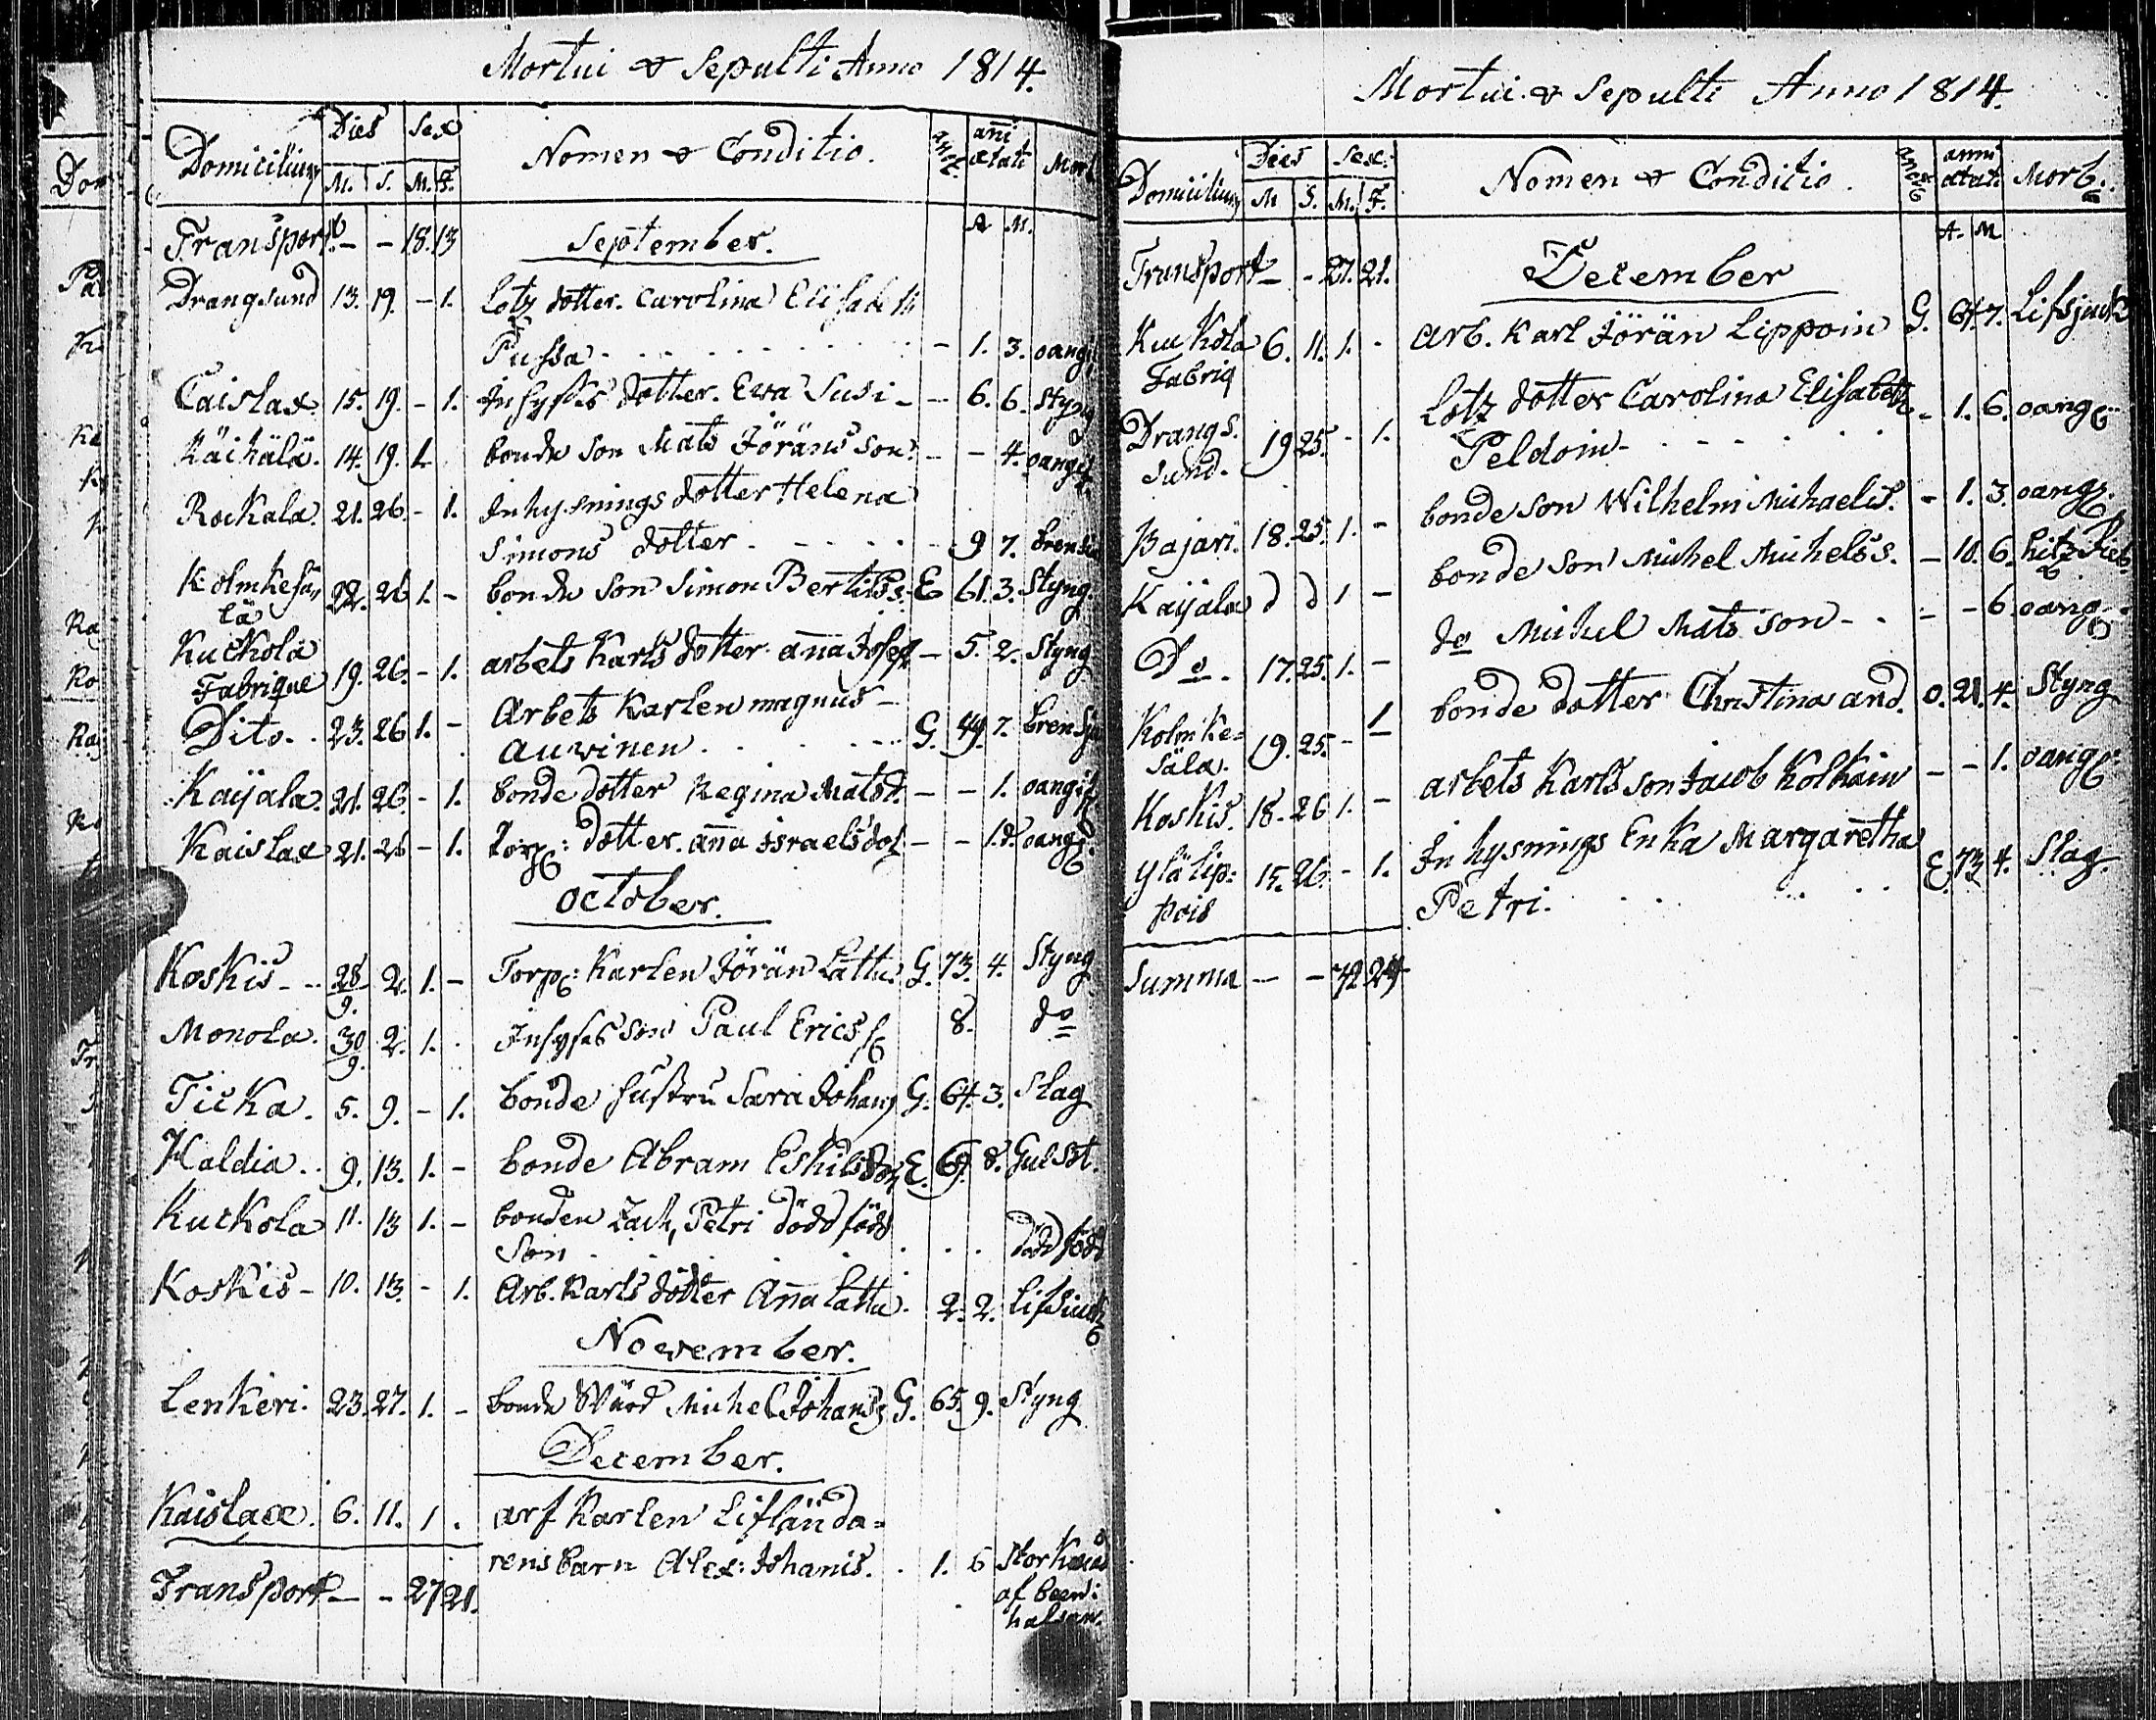 Mortui & Sepulti Anno 1814.
Domicilium Dies Sex Nomen & Conditio. anni ætati Morb
M. S. M. F.
A M.
Transport - - 18. 13 September.
Drangsund 13. 19. - 1. Lotz dotter. Carolina Elisabeth
Pussa - 1. 3. oangif
Caislax. 15. 19. - 1. Inhyses dotter. Ewa Susi - - 6. 6. Styng
Räihälä. 14. 19. 1. bonde son Mats Jöräns son. - - 4. oangif
Rockala. 21. 26. - 1. Inhysnings dotter Helena
Simons dotter - 9 7. brensju
Kolmkesä,
lä 22. 26 1. - bonde son Simon Bertils s. E 61. 3. Styng.
Kuckola
Fabrique 19. 26. - 1. arbets Karls dotter aña Josep - 5. 2. Styng
Dito. 23. 26 1. - Arbets Karlen magnus -
auwinen G. 49. 7. brensju
Kaijala. 21. 26 - 1. bonde dotter Regina Matsd. - - 1. oangif
Kaislax 21. 26 - 1. torp: dotter. aña israelsdot - - 1.d. oangf.
October.
Koskis - 28/9. 2. 1. - Torp: Karlen Jörän Lattu. G. 73. 4. Styng
Monola. 30/9. 2. 1. Inhyses son Paul Erics s 8. do
Ticka. 5. 9. - 1. bonde hustru Sara Johans G. 64. 3. Slag
Haldia. 9. 13. 1. - bonde Abram Eskilsson E. 69. 8. Gulsot.
Kuckola 11. 13 1. - bonden Zach, Petri död född
Son död född
Koskis - 10. 13. - 1. Arb. Karls dotter Aña Lattu. 2. 2. Lifsiuck
November.
Lenkeri. 23. 27. 1. - bonde Wärd Michel Johans s G. 65. 9. Styng
December.
Kaislax. 6. 11. 1. arb Karlen Liflända=
rens barn Alex: Johanis. 1. 6 Stor
af been:
halsen.
Transport - - 27 21.
Mortui & Sepulti Anno 1814.
Domicilium Dies Sex: Nomen & Conditio. anni ætati Morb.
M S. M. F.
A. M
Transport - - 27. 21. December
Kuckola
Fabriq 6. 11. 1. - Arb. Karl Jörän Lippoin G. 67. 7. Lifsjuck
Drangs.
sund. 19 25. - 1. Lotz dotter Carolina Elisabeth
Peldoin - 1. 6. oangf
Bajari. 18. 25. 1. - bonde son Wilhelm Michaelis. - 1. 3. oangf.
Kaijala d d 1 - bonde son Michel Michels s. - 10. 6. hitz Feb.
Do. 17. 25. 1. - do Michel Mats son - - 6. oang
Kolmke=
sälä. 19. 25. - 1 bonde dotter Christina and. O. 21. 4. Styng
Koskis. 18. 26 1. - arbets Karls son Jacob Kolkain - - 1. oangf
Ylälip:
pois 15. 26. - 1. Inhysnings Enka Margaretha
Petri. E. 73 4. Slag.
Summa - - 32 24